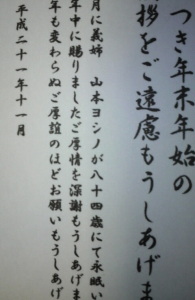 つき年末年始の
挨拶をご遠慮もうしあげま
月に義姉 山本ヨシノが八十四歳にて永眠い
年中に賜りましたご厚情を深謝もうしあげま
年も変わらぬご厚誼のほどお願いもうしあげ
平成二十一年十一月